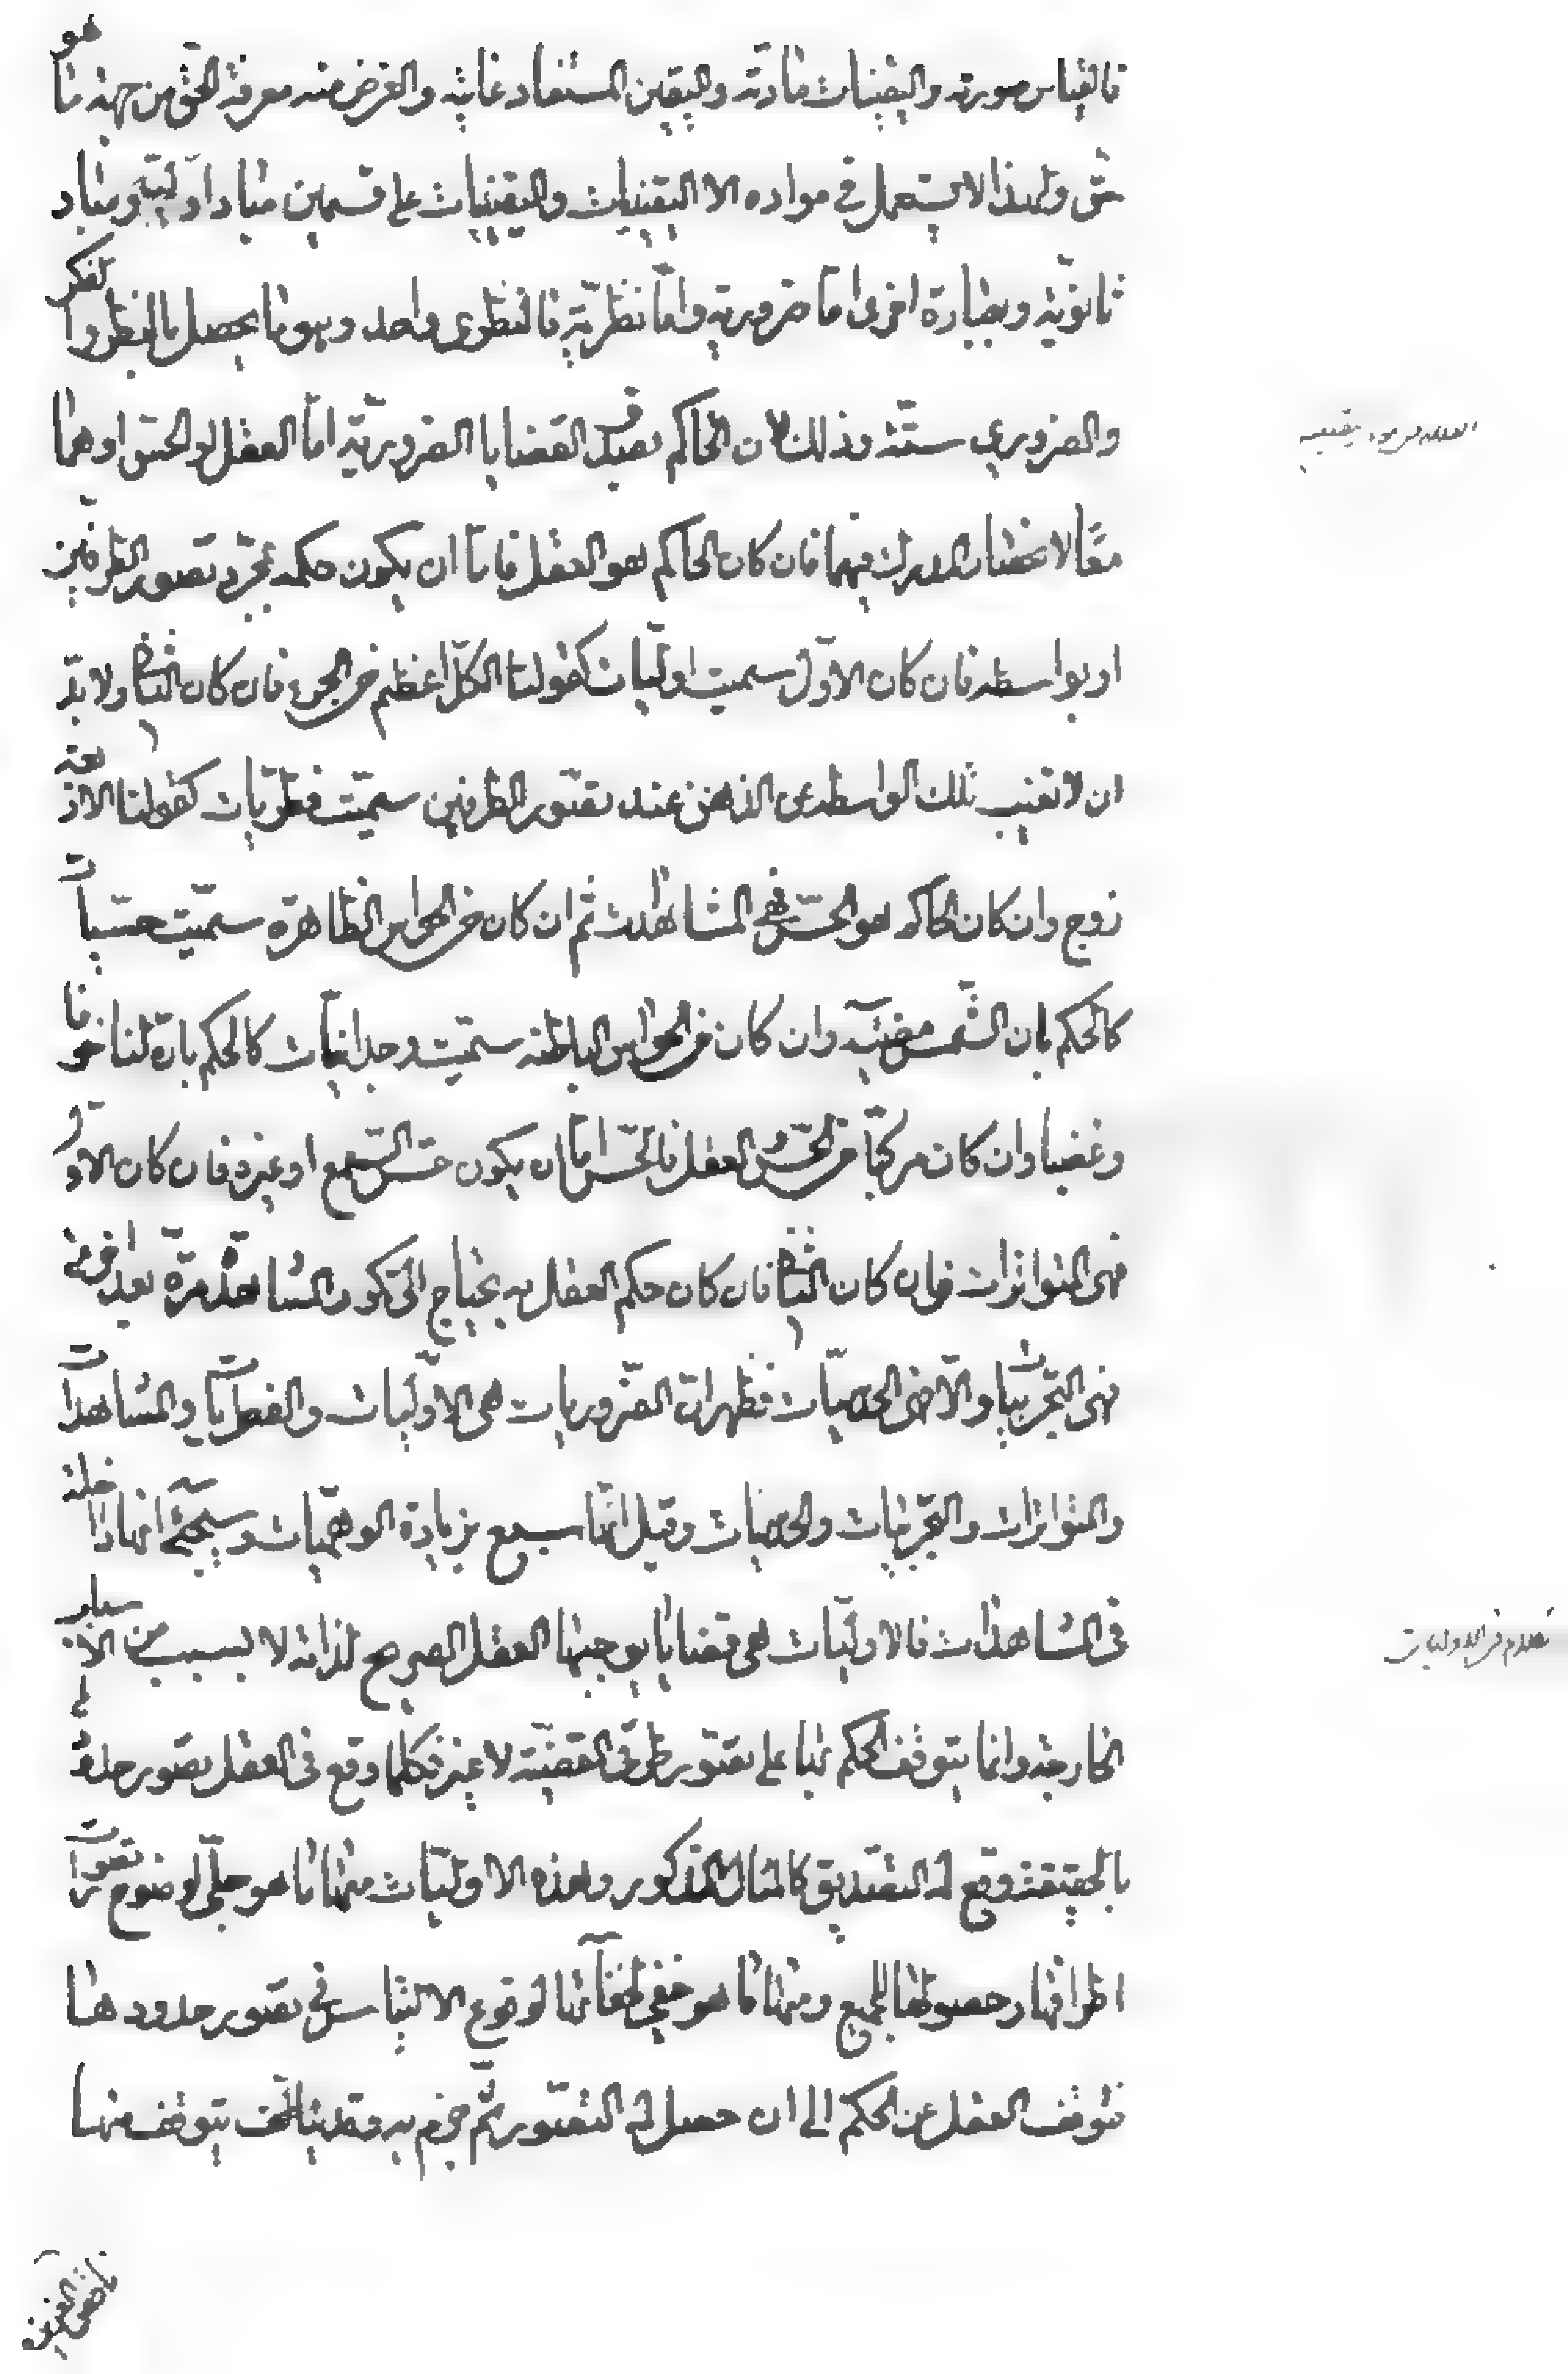 فالقياس صورته واليقينيات مادته واليقين المستفاد غايته والغرض منه معرفة الحق من جهة ما هو
حق ولهذا لا يستعمل في مواده الا اليقينيات واليقينيات على قسمين مباد اوليّة ومباد
ثانويّة وبعبارة اخرى امّا ضرورية وامّا نظريّة فالنظري واحد وهو ما يحصل بالنظر والفكر
والضروري ستّة وذلك لان الحاكم بصدق القضايا الضروريّة امّا العقل او الحسّ او هما
معًا لانحصار المدرك فيهما فان كان الحاكم هو العقل فامّا ان يكون حكمه بمجرّد تصور الطرفين
او بواسطة فان كان الاوّل سميت اوليّات كقولنا الكلّ اعظم من الجزء فان كان الثاني ولا بدّ
ان لا تغيب تلك الواسطة عن الذهن عند تصّور الطرفين سميّت فطريّات كقولنا الاربعة
زوج وان كان الحاكم هو الحسّ فهي المشاهدات ثم ان كان من الحواس الظاهرة سميّت حسّيات
كالحكم بان الشّمس مضيئة وان كان من الحواس الباطنة سميّت وجدانيّات كالحكم بانّ لنا خوفا
وغضبا وان كان مركّبا من الحسّ والعقل فالحسّ امّا ان يكون حسّ السّمع او غيره فان كان الاوّل
فهي المتواترات فان كان الثاني فان كان حكم العقل به يحتاج الى تكرر المشاهدة مرّة بعد اخرى
فهي التجربيات والّا فهي الحدسيّات فظهر انّ الضّروريات هي الاوّليّات والفطريّات والمشاهدات
والمتواترات والتجربيّات والحدسيّات وقيل انّها سبع بزيادة الوهميّات وسيجيء انها داخلة
في المشاهدات فالاوليّات هي قضايا يوجبها العقل الصريح لذاته لا بسبب من الاسباب
الخارجة وانما يتوقف الحكم بها على تصّور طرفي القضيّة لا غير فكلما وقع في العقل تصّور حدود
بالحقيقة وقع له التصّديق كالمثال المذكور وهذه الاوليّات منها ما هو جليّ لوضوح تصورات
اطرافها وحصولها للجميع ومنها ما هو خفي لخفائها لوقوع الالتباس في تصّور حدودها
فتوقف العقل عن الحكم الى ان حصل له التصّور ثمّ جزم به وقد يتالف يتوقف منها
كلام في الاوليات